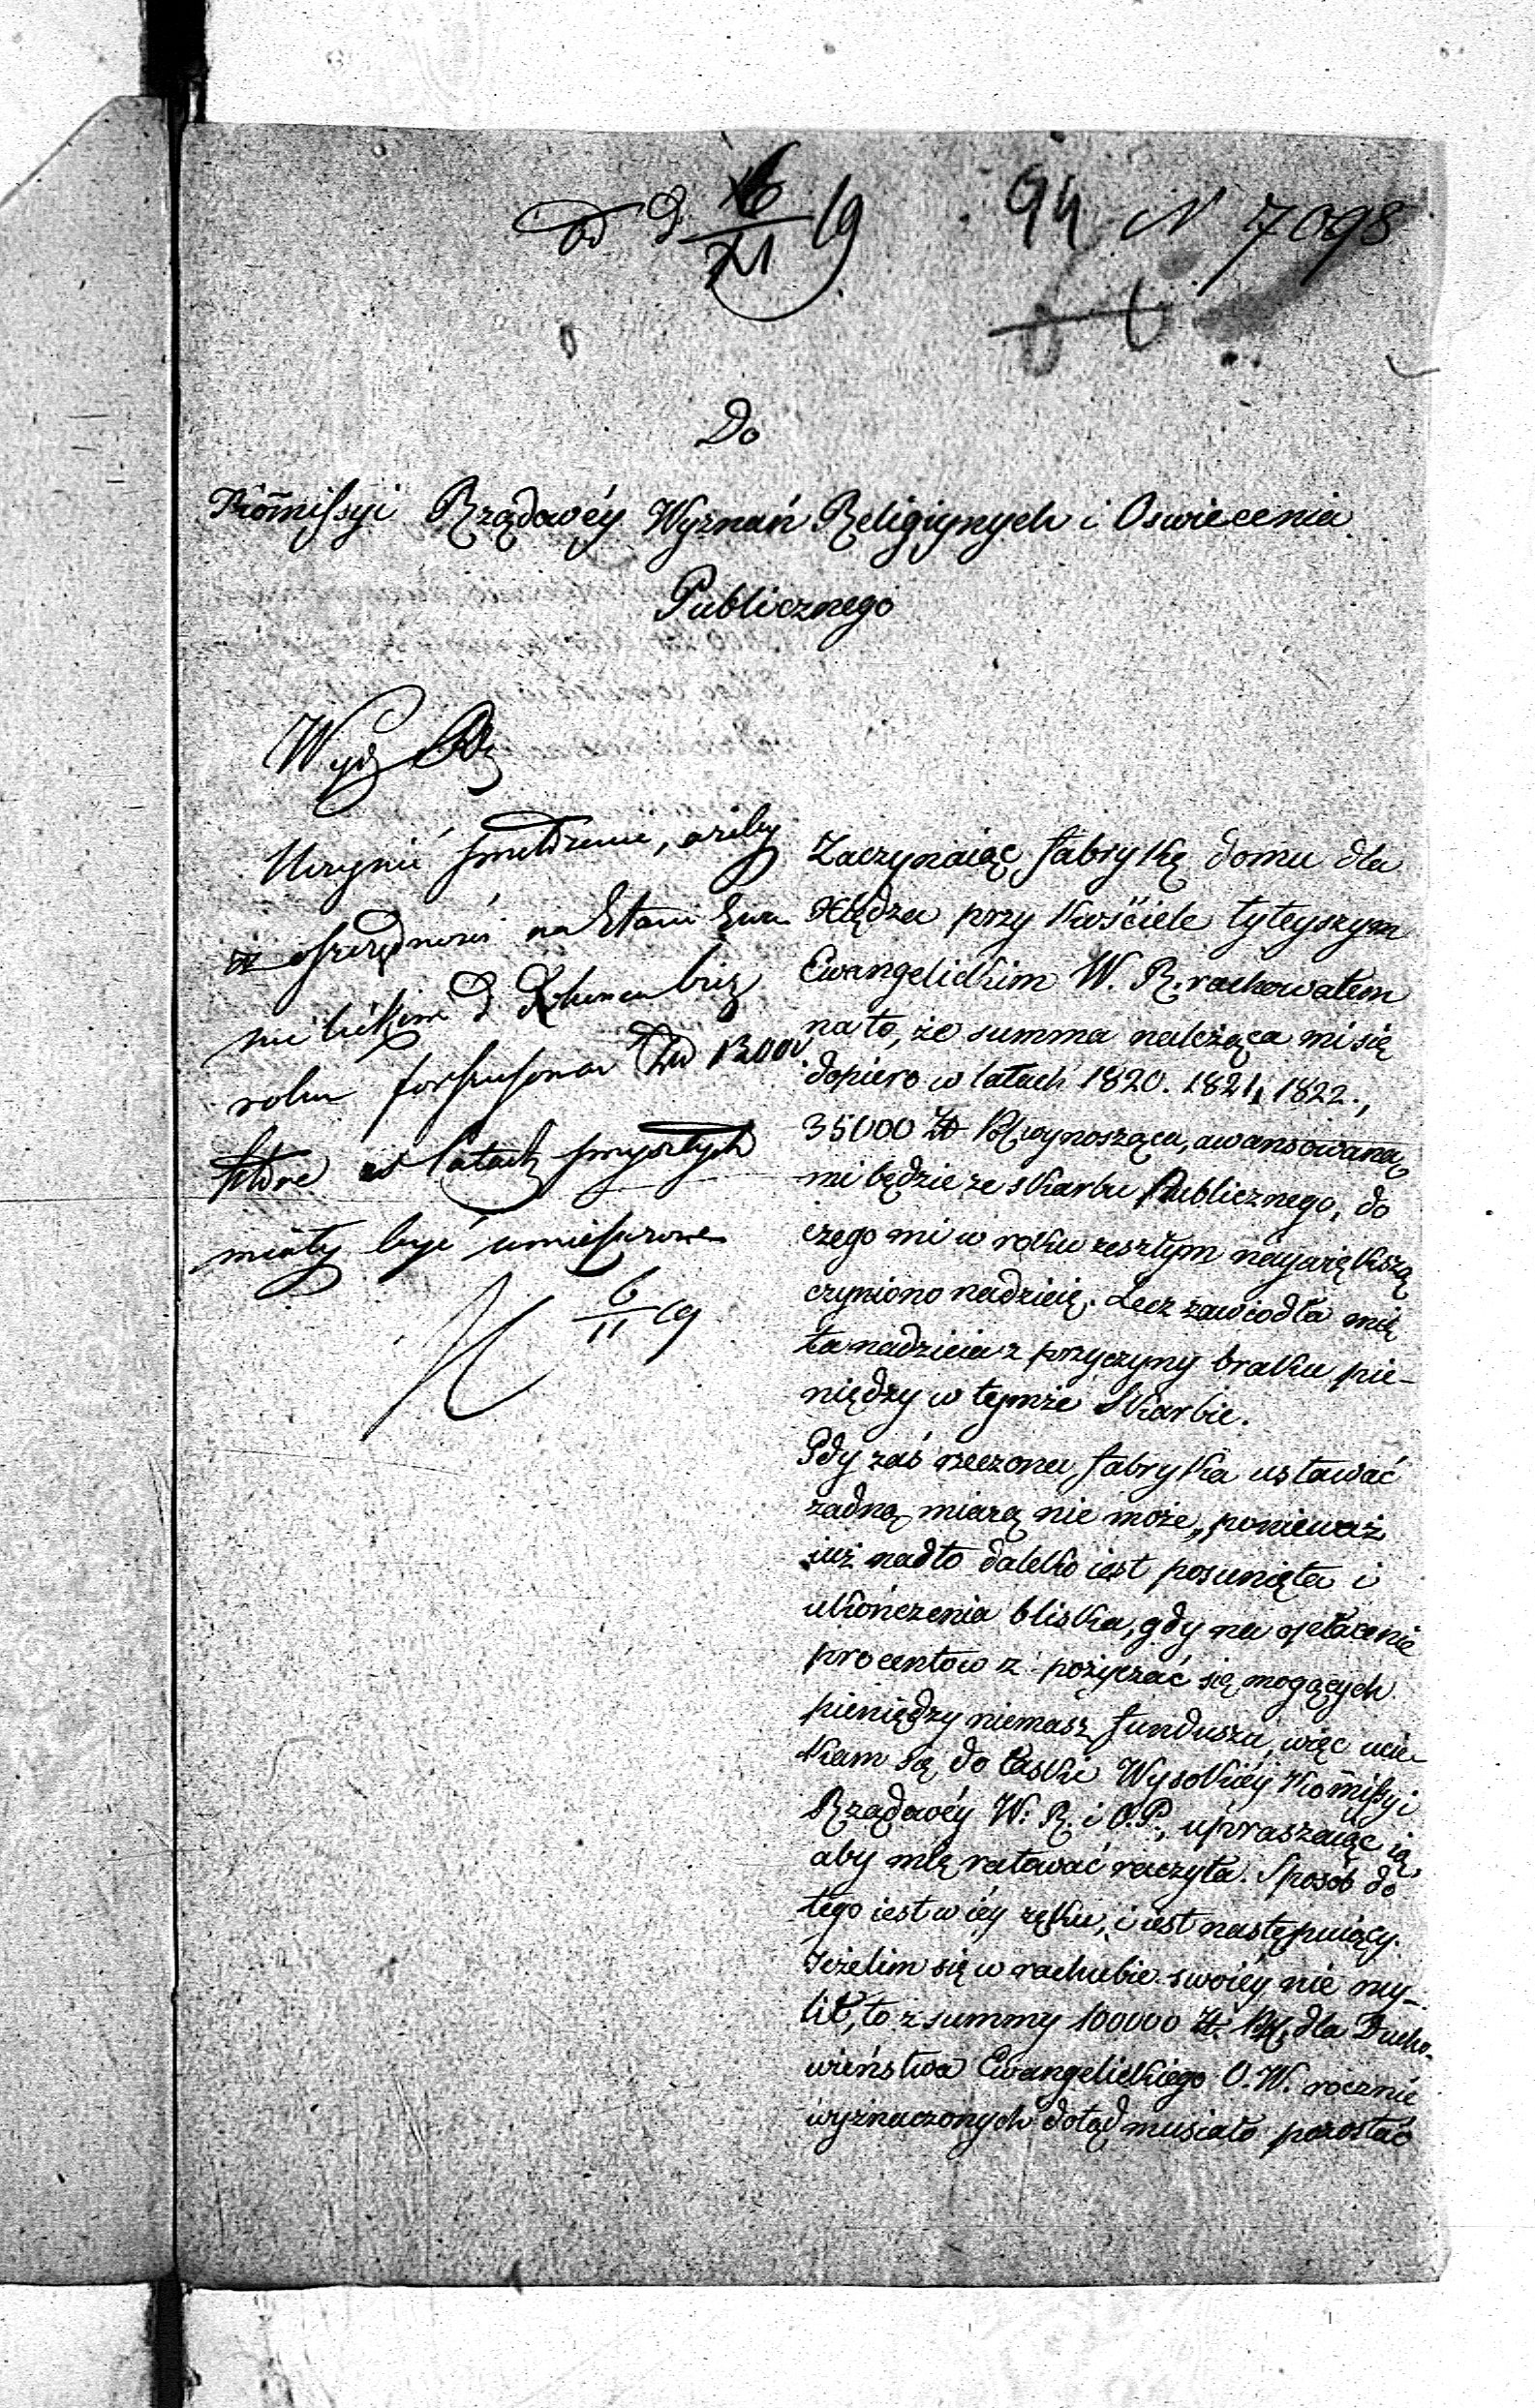 94 N 7098
Do
Kom̄issyi Rządowéy Wyznań Religiynych i Oswiecenia
Publicznego
Wydz
Uczynić
na Etacie
roku Złp 12000
które w latach przyszłych
miały być umieszczone
6/11 19
Zaczynaiąc fabrykę domu dla
Xiędza przy kościele tyteyszym
Ewangelickim W. R. rachowałem
na to, że summa należąca mi się
dopiero w latach 1820. 1821, 1822.,
35000 Zł Pol. wynosząca, awansowaną
mi będzie ze skarbu Publicznego, do
czego mi w roku zeszłym naywiększą
czyniono nadzieię. Lecz zawiodła mię
ta nadzieia z przyczyny braku pie-
niędzy w tymże Skarbie.
Gdy zaś rzeczona fabryka ustawać
żadną miarą nie może, ponieważ
iuż nadto daleko iest posunięta i
ukończenia bliska, gdy na opłacenie
procentow z pożyczać się mogących
pieniędzy niemasz funduszu, więc ucie-
kam się do łaski Wysokiéy Kom̄issyi
Rządowéy W. R. i O. P., upraszaiąc ią,
aby mię ratować raczyła. Sposób do
tego iest w iéy ręku, i iest następuiący.
Jeżelim się w rachubie swoiéy nie my-
lił, to z summy 100000 Zł. Pol. dla Ducho-
wieństwa Ewangelickiego O. W. rocznie
wyznaczonych dotąd musiało pozostać